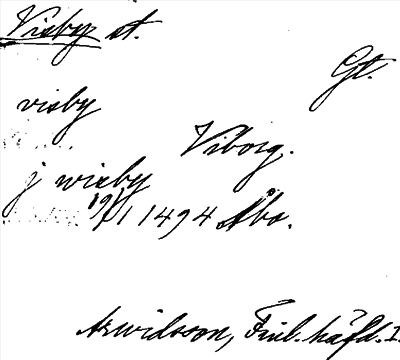 Visby st.
Gt.
visby
Viborg.
j wisby
19/1 1494 Åbo.
Arwidsson, Finl. häfd. I.